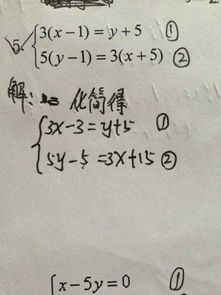 5. { 3(x-1)=y+5 ①
5(y-1)=3(x+5) ②
解: 化简得
{ 3x-3=y+5 ①
5y-5=3x+15 ②
{ x-5y=0 ①